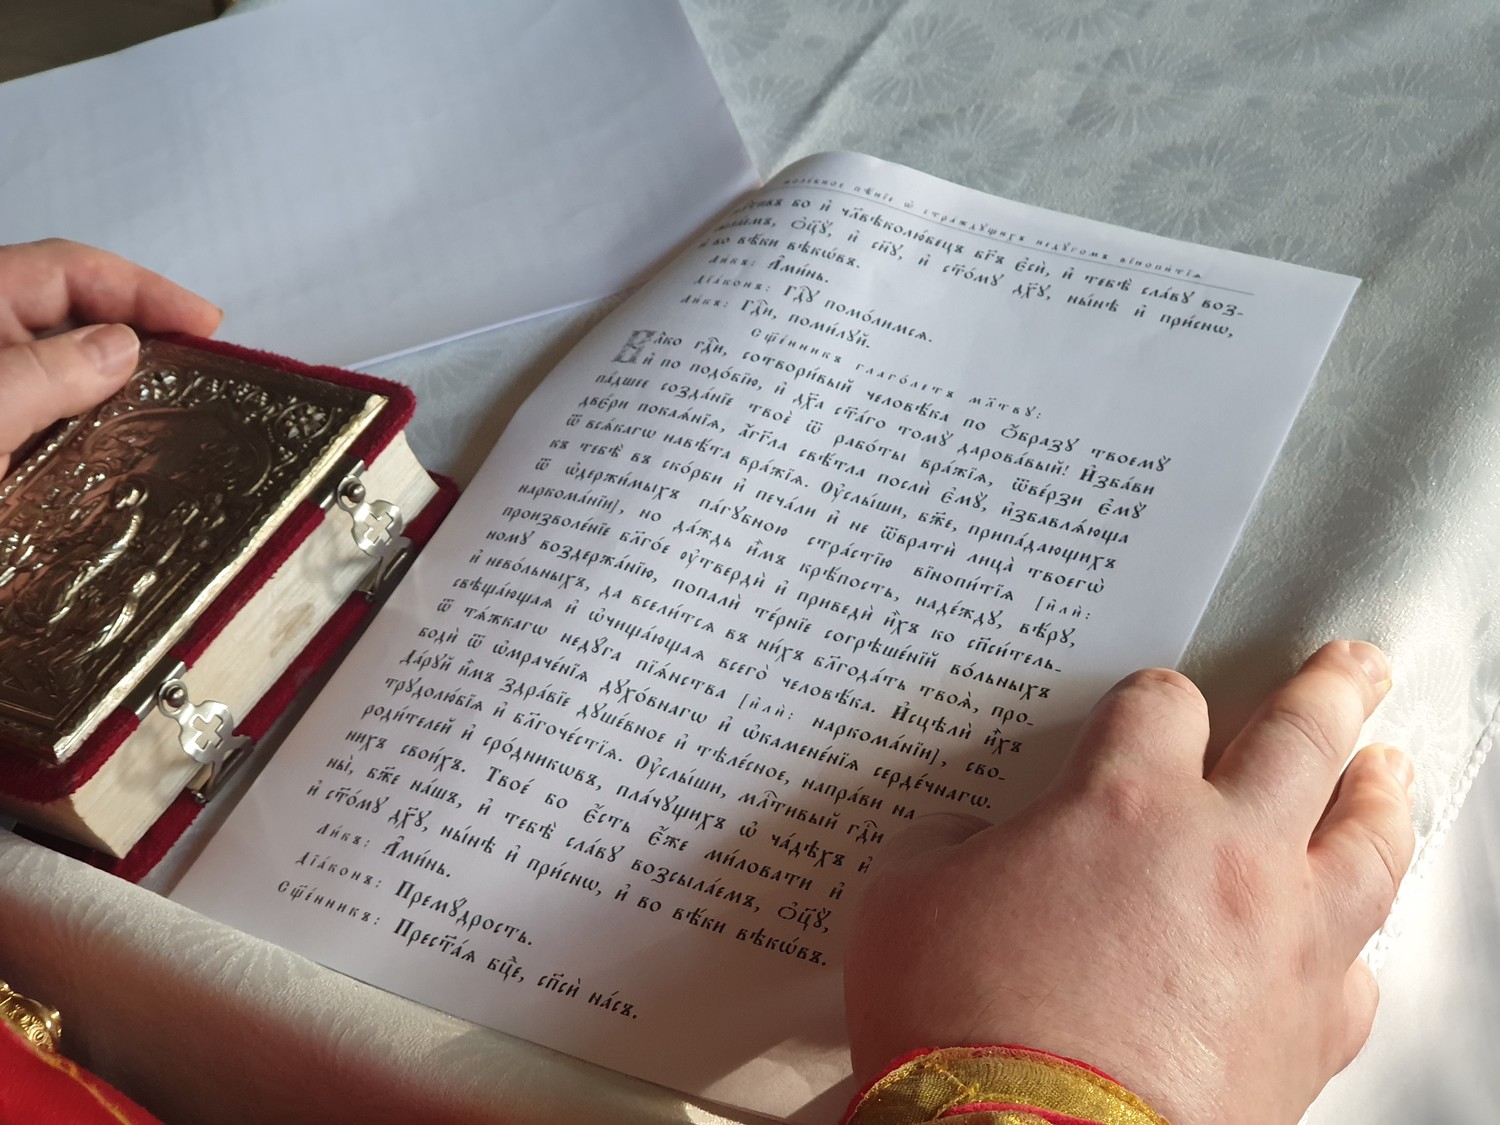 молéбное пѣ́нїе ѡ҆ стра́ждꙋщихъ недꙋ́гомъ вїнопи́тїѧ
бо и҆ чл҃вѣколю́бецъ бг҃ъ є҆сѝ, и҆ тебѣ̀ сла́вꙋ воз-
ѻ҆ц҃ꙋ̀, и҆ сн҃ꙋ, и҆ ст҃о́мꙋ дх҃ꙋ, ны́нѣ и҆ при́снѡ,
и҆ во вѣ́ки вѣкѡ́въ.
ли́къ: А҆ми́нь.
дїа́конъ: Гдⷭ҇ꙋ помо́лимсѧ.
ли́къ: Гдⷭ҇и, поми́лꙋй.
Сщ҃е́нникъ глаго́летъ мл҃твꙋ:
Влⷣко гдⷭ҇и, сотвори́вый человѣ́ка по ѻ҆́бразꙋ твоемꙋ̀
и҆ по подо́бїю, и҆ дх҃а ст҃а́го томꙋ̀ дарова́вый! И҆зба́ви
па́дшее созда́нїе твоѐ ѿ рабо́ты вра́жїѧ, ѿве́рзи є҆мꙋ̀
двє́ри покаѧ́нїѧ, а҆́гг҃ла свѣ́тла послѝ є҆мꙋ̀, и҆збавлѧ́юща
ѿ всѧ́кагѡ навѣ́та вра́жїѧ. Оу҆слы́ши, бж҃е, припа́дающихъ
къ тебѣ̀ въ ско́рби и҆ печа́ли и҆ не ѿвратѝ лица̀ твоегѡ̀
ѿ ѡ҆держи́мыхъ па́гꙋбною стра́стїю вїнопи́тїѧ [и҆лѝ:
наркома́нїи], но да́ждь и҆̀мъ крѣ́пость, наде́ждꙋ, вѣ́рꙋ,
произволе́нїе бл҃го́е оу҆твердѝ и҆ приведѝ и҆̀хъ ко сп҃си́тель-
номꙋ воздержа́нїю, попалѝ те́рнїе согрѣше́нїй во́льныхъ
и҆ нево́льныхъ, да всели́тсѧ въ ни́хъ бл҃года́ть твоѧ̀, про-
свѣща́ющаѧ и҆ ѡ҆чища́ющаѧ всего̀ человѣ́ка. И҆сцѣлѝ и҆̀хъ
ѿ тѧ́жкагѡ недꙋ́га пїѧ́нства [и҆лѝ: наркома́нїи], сво-
бодѝ ѿ ѡ҆мраче́нїѧ дꙋхо́внагѡ и҆ ѡ҆камене́нїѧ серде́чнагѡ.
Да́рꙋй и҆̀мъ здра́вїе дꙋше́вное и҆ тѣле́сное, напра́ви на
трꙋдолю́бїѧ и҆ бл҃гоче́стїѧ. Оу҆слы́ши, млⷭ҇тивый гдⷭ҇и
роди́телей и҆ сро́дникѡвъ, пла́чꙋщихъ ѡ҆ ча́дѣхъ и҆
нихъ свои́хъ. Твое́ бо є҆́сть є҆́же ми́ловати и҆
ны̀, бж҃е на́шъ, и҆ тебѣ̀ сла́вꙋ возсыла́емъ, ѻ҆ц҃ꙋ̀,
и҆ ст҃о́мꙋ дх҃ꙋ, ны́нѣ и҆ при́снѡ, и҆ во вѣ́ки вѣкѡ́въ.
ли́къ: А҆ми́нь.
дїа́конъ: Премꙋ́дрость.
Сщ҃е́нникъ: Прест҃а́ѧ бцⷣе, сп҃сѝ на́съ.